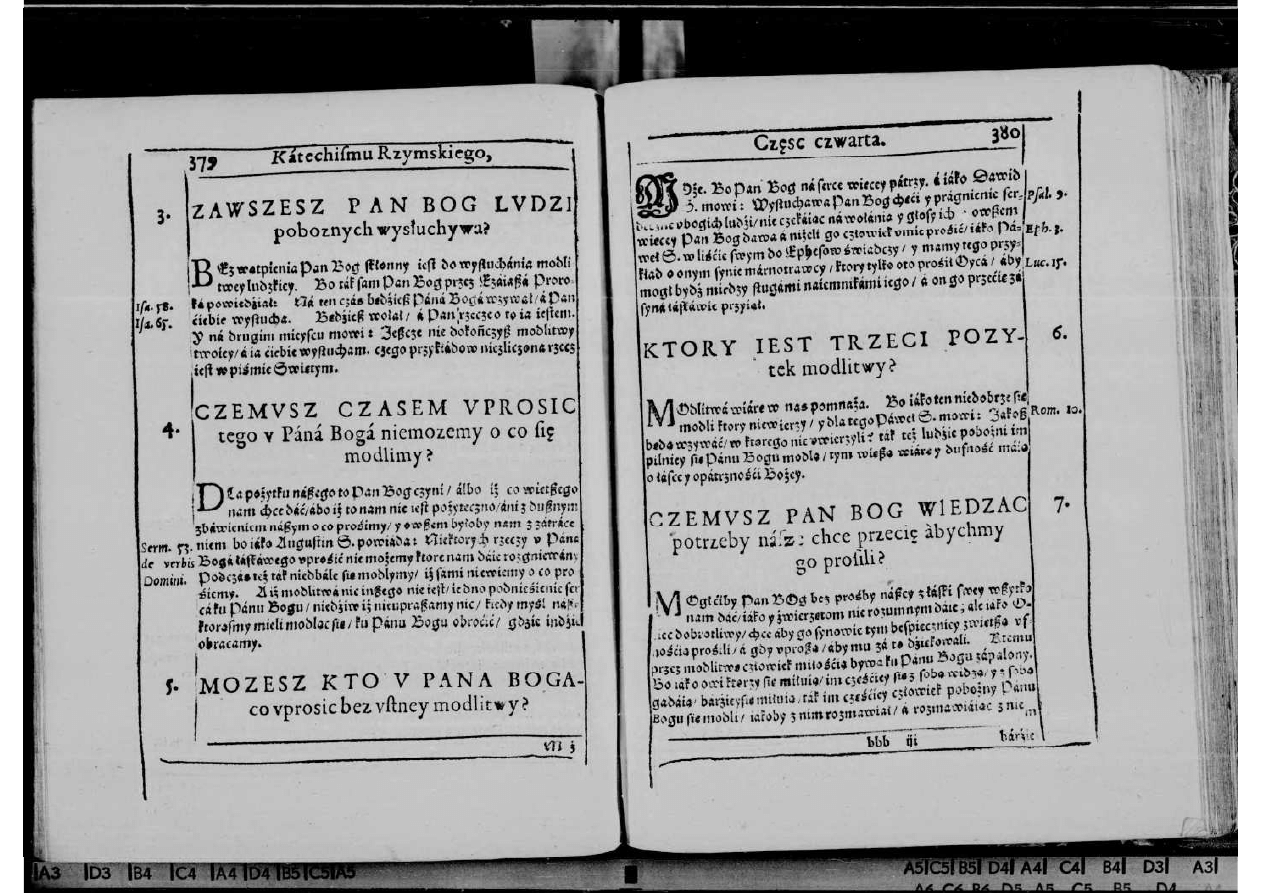 379 Kátechismu Rzymskiego,
3. ZAWSZESZ PAN BOG LVDZI
poboznych wysłuchywa?
BEz wątpienia Pan Bog skłonny iest do wysłuchánia modli
twey ludzkiey. Bo ták sam Pan Bog przez Ezáiaszá Proro-
ká powiedział: Ná ten czás będziesz Páná Bogá wzywał/ á Pan
Isa. 58.
ćiebie wysłucha. Będziesz wołał/ á Pan rzecze o to ia iestem.
Isa. 65.
Y ná drugim mieyscu mowi: Jeszcze nie dokończysz modlitwy
twoiey/ á ia ćiebie wysłucham. czego przykłádow niezliczona rzecz
iest w piśmie Swiętym.
4. CZEMVSZ CZASEM VPROSIC
tego v Páná Bogá niemozemy o co się
modlimy?
DLa pożytku nászego to Pan Bog czyni/ álbo iż co więtszego
nam chce dáć/ ábo iż to nam nie iest pożyteczno/ áni z dusznym
zbáwieniem nászym o co prośimy/ y owszem byłoby nam z zátráce
Serm. 53. niem bo iáko Augustin S. powiáda: Niektorych rzeczy v Páná
de verbis Bogá łáskáwego vprośić nie możemy ktore nam dáie rozgniewány
Domini. Podczás też ták niedbále się modlymy/ iż sámi niewiemy o co pro
śiemy. A iż modlitwá nic inszego nie iest/ iedno podnieśienie ser
cá ku Pánu Bogu/ niedźiw iż nieupraszamy nic/ kiedy myśl nász/
ktorąsmy mieli modląc się/ ku Pánu Bogu obroćić/ gdzie indźie
obracamy.
5. MOZESZ KTO V PANA BOGA-
co vprosic bez vstney modlitwy?
Częsc czwarta. 380
MOże. Bo Pan Bog ná serce więcey pátrzy. á iáko Dawid
Psal. 9.
S. mowi: Wysłuchawa Pan Bog chęći y prágnienie ser-
deczne vbogich ludźi/ nie czekáiąc ná wołánia y głosy ich. owszem
więcey Pan Bog dawa á niżeli go człowiek vmie prośić/ iáko Pá-
Eph. 3.
weł S. w liśćie swym do Ephesow świádczy/ y mamy tego przy-
kład o onym synie márnotrawcy/ ktory tylko oto prośił Oycá/ áby
Luc. 15.
mogł bydź miedzy sługámi naiemnikámi iego/ á on go przećie zá
syná łáskáwie przyiął.
KTORY IEST TRZECI POZY- 6.
tek modlitwy?
MOdlitwá wiárę w nas pomnaża. Bo iáko ten niedobrze się
modli ktory niewierzy/ y dla tego Páweł S. mowi: Jákoż
Rom. 10.
będą wzywáć/ w ktorego nie vwierzyli? ták też ludźie pobożni im
pilniey się Pánu Bogu modlą/ tym większą wiárę y dufność máią
o łásce y opátrznośći Bożey.
CZEMVSZ PAN BOG WIEDZAC 7.
potrzeby násze: chce przecię àbychmy
go prosili?
MOgłćiby Pan BOg bez prośby nászey z łáski swey wszytko
nam dáć/ iáko y źwierzętom nie rozumnym dáie; ale iáko O-
ćiec dobrotliwy/ chce áby go synowie tym bespieczniey z więtszą vf
nośćią prośili/ á gdy vproszą/ áby mu zá to dźiękowali. Ktemu
przez modlitwę człowiek miłośćią bywa ku Pánu Bogu zápalony.
Bo iáko owi ktorzy się miłuią/ im częśćiey się z sobą widzą/ y z sobą
gadáią/ bárźiey się miłuią/ ták im częśćiey człowiek pobożny Pánu
Bogu się modli/ iákoby z nim rozmawiał/ á rozmawiáiąc z niem
bbb iij bárźie
A3 D3 B4 C4 A4 D4 B5 C5 A5
A5 C5 B5 D4 A4 C4 B4 D3 A3